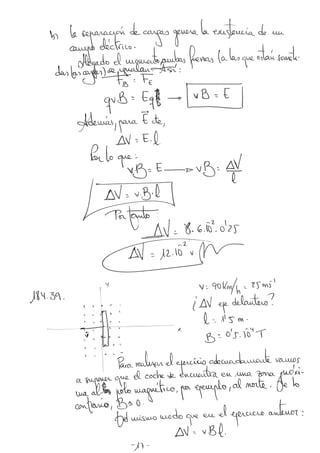 b) la separación de cargas genera la existencia de un
campo eléctrico.
Llegado el momento, ambas fuerzas (a las que están someti-
das las cargas) se igualan. Así:
F_B = F_E
qvB = Eq → vB = E
Además, para E cte,
ΔV = E·l
Por lo que:
vB = E → vB = ΔV/l
ΔV = v·B·l
Por tanto:
ΔV = 8·6·10⁻²·0'25
ΔV = 12·10⁻² v
184.39.
Y
v = 90 Km/h = 25 ms⁻¹
¿ΔV eje delantero?
l = 1'5 m
B = 0'5·10⁻⁴ T
x
Para realizar el ejercicio adecuadamente vamos
a suponer que el coche se encuentra en una zona próxi-
ma al polo magnético, por ejemplo, al norte. De lo
contrario, B≈0.
Del mismo modo que en el ejercicio anterior:
ΔV = vBl.
-17-